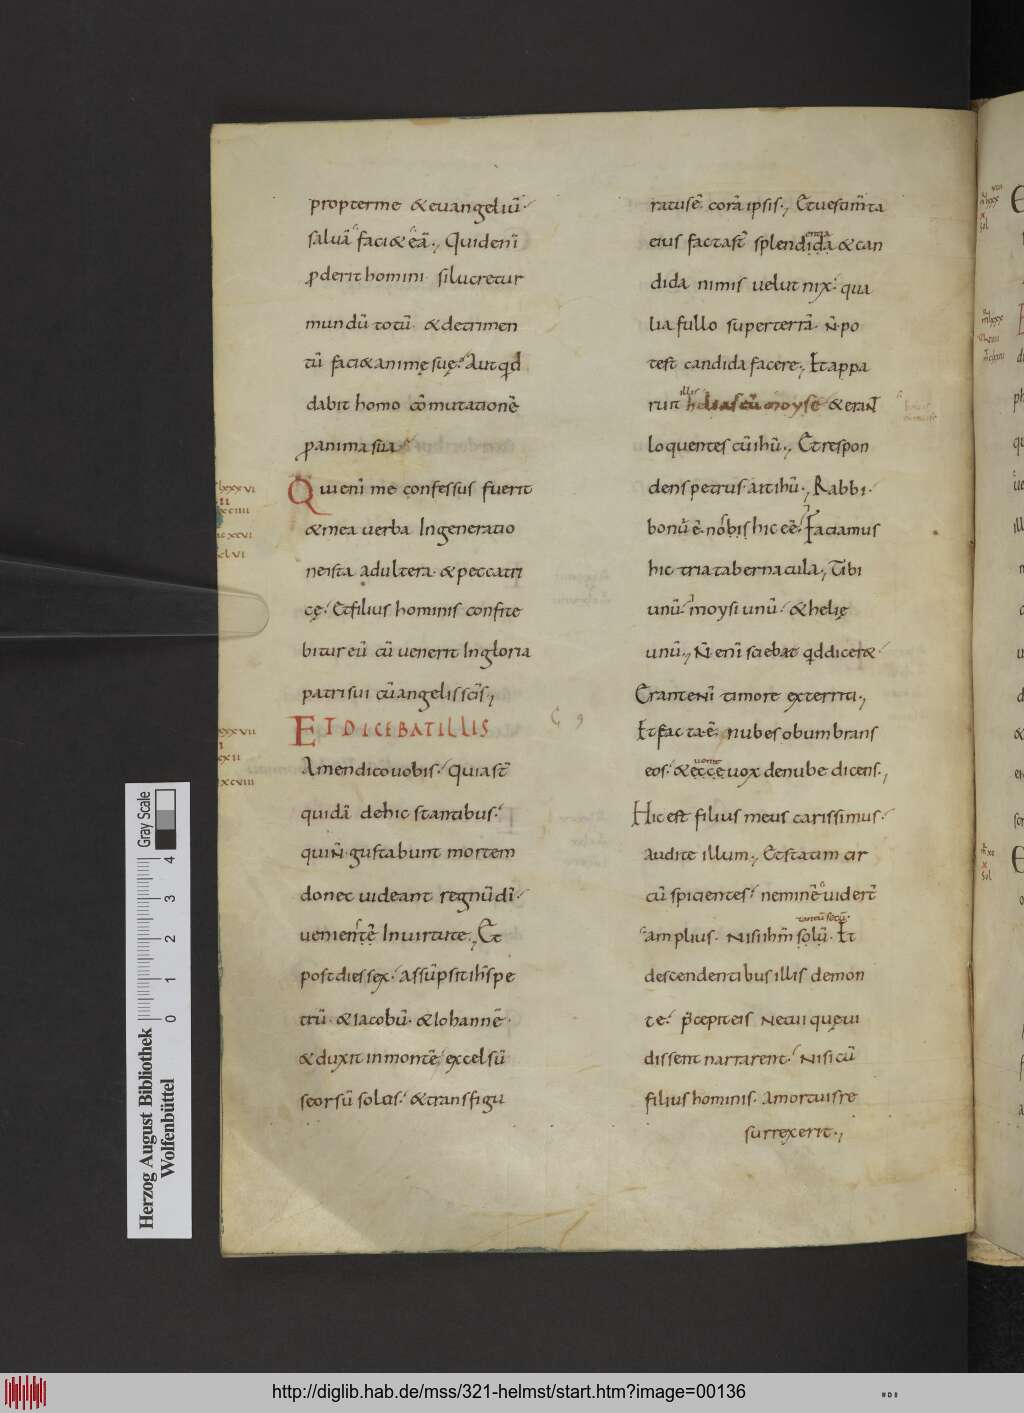 propterme & euangeliū·
saluā faci& eā·, Quidenī
ꝓderit homini· silucretur
mundū totū· & detrimen
tū faci& animę suę· Aut qđ
dabit homo cōmutationē
ꝓanima sua
Quienī me confessus fuerit
& mea uerba Ingeneratio
neista adultera· & peccatri
cę· Etfilius hominis confite
bitur eū cū uenerit Ingloria
patrisui cū angelis scīs·,
ETDICEBATILLIS
Amendicouobis· Quiasт̄
quidā dehic stantibus·
quiN̄· gustabunt mortem
donec uideant regnū dī·
uenientē Inuirtute·, Et
postdiessex· assūpsit ih̄s pe
trū· & Iacobū· & Iohannē·
& duxit inmontē excelsū
seorsū solos· & transfigu
ratusē· corā ipsis·, Etuestim̄ta
eius factasт̄ splendida & can
dida nimis uelut nix· qua
lia fullo superterrā· N̄· po
test candida facere·, Etappa
ruit illis heliascū moyse & eranT
loquentes cū ihū·, Etrespon
denspetrus· aitihū·, Rabbi·
bonū ē· nobis hic eē· Faciamus
hic tria tabernacula·, Tibi
unū· moysi unū· & helię
unū·, N̄ enī sciebat qđ dicer&·
Erantenī timore exterriti·,
Etfacta ē· nubes obumbrans
eos· & ecce uenit uox denube dicens·,
Hic est filius meus carissimus·
audite illum·, Etstatim cir
cū spicientes· neminē uiderт̄
amplius· Nisi ihm̄ solū· tantū secū· Et
descendentibus illis demon
te· p̄cepit eis Necui quęui
dissent narrarent· Nisicū
filius hominis· Amortuisre
surrexerit·,
Gray Scale
0 1 2 3 4
Herzog August Bibliothek
Wolfenbüttel
http://diglib.hab.de/mss/321-helmst/start.htm?image=00136